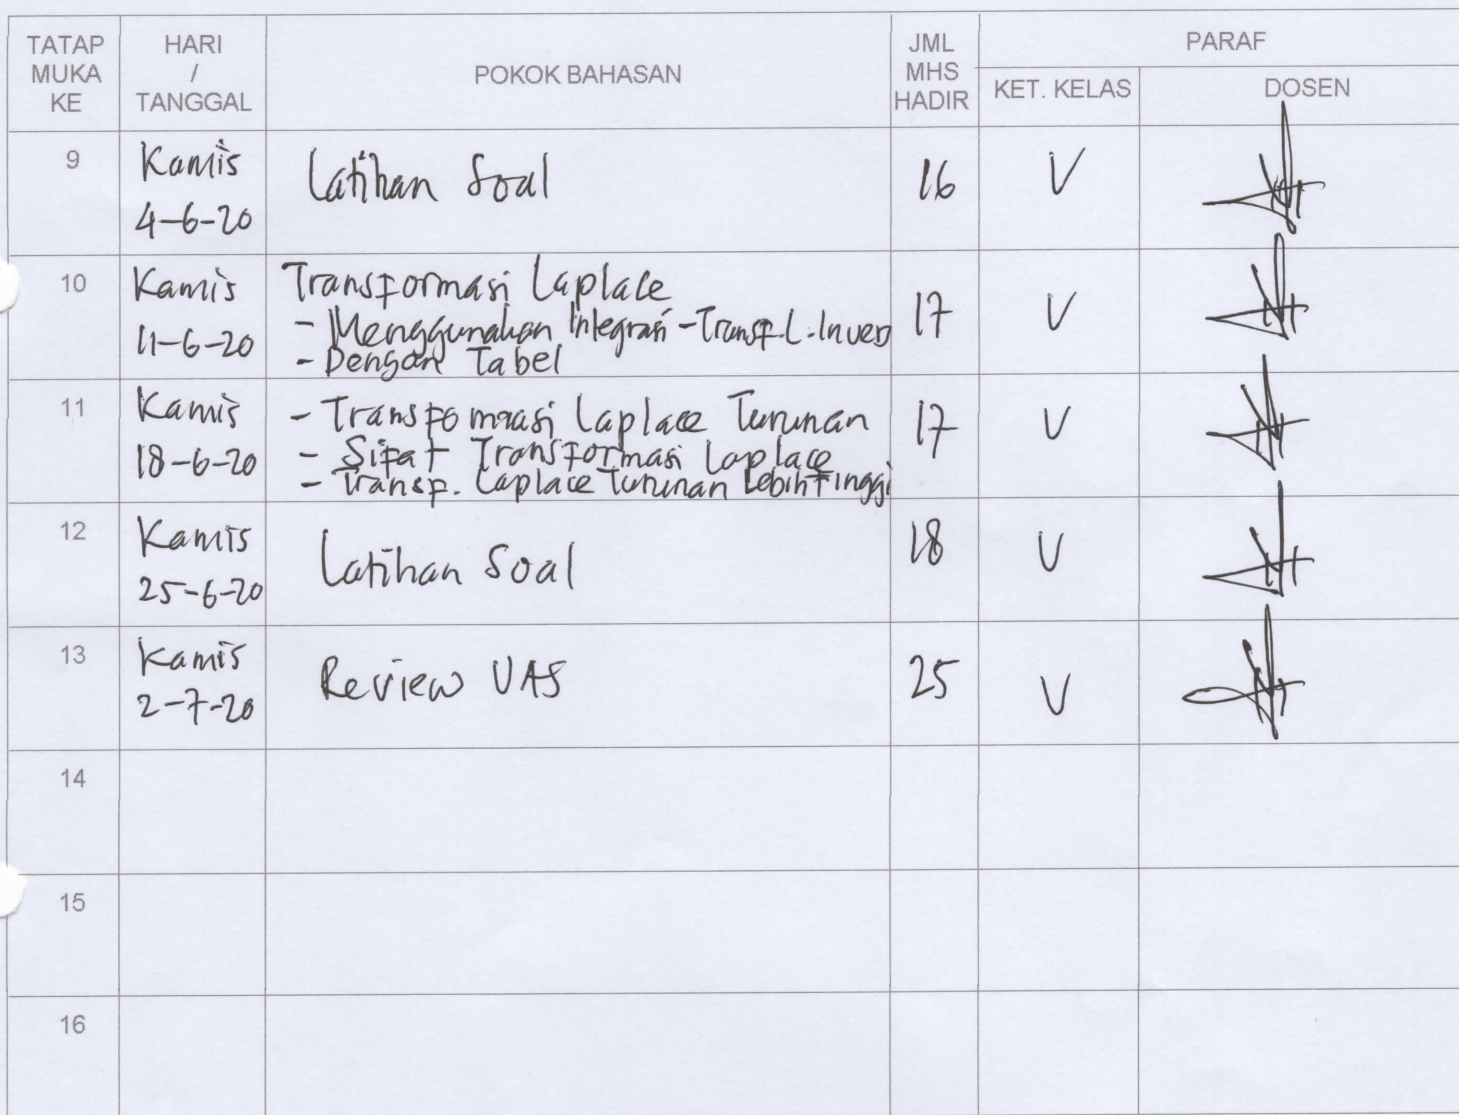 TATAP MUKA KE
HARI / TANGGAL
POKOK BAHASAN
JML MHS HADIR
PARAF
KET. KELAS
DOSEN
9
Kamis
4-6-20
Latihan Soal
16
V
10
Kamis
11-6-20
Transformasi Laplace
- Menggunakan Integrasi - Transf. L. Invers
- Dengan Tabel
17
V
11
Kamis
18-6-20
- Transfomrasi Laplace Turunan
- Sifat Transformasi Laplace
- Transf. Laplace Turunan Lebih Tinggi
17
V
12
Kamis
25-6-20
Latihan Soal
18
V
13
Kamis
2-7-20
Review UAS
25
V
14
15
16